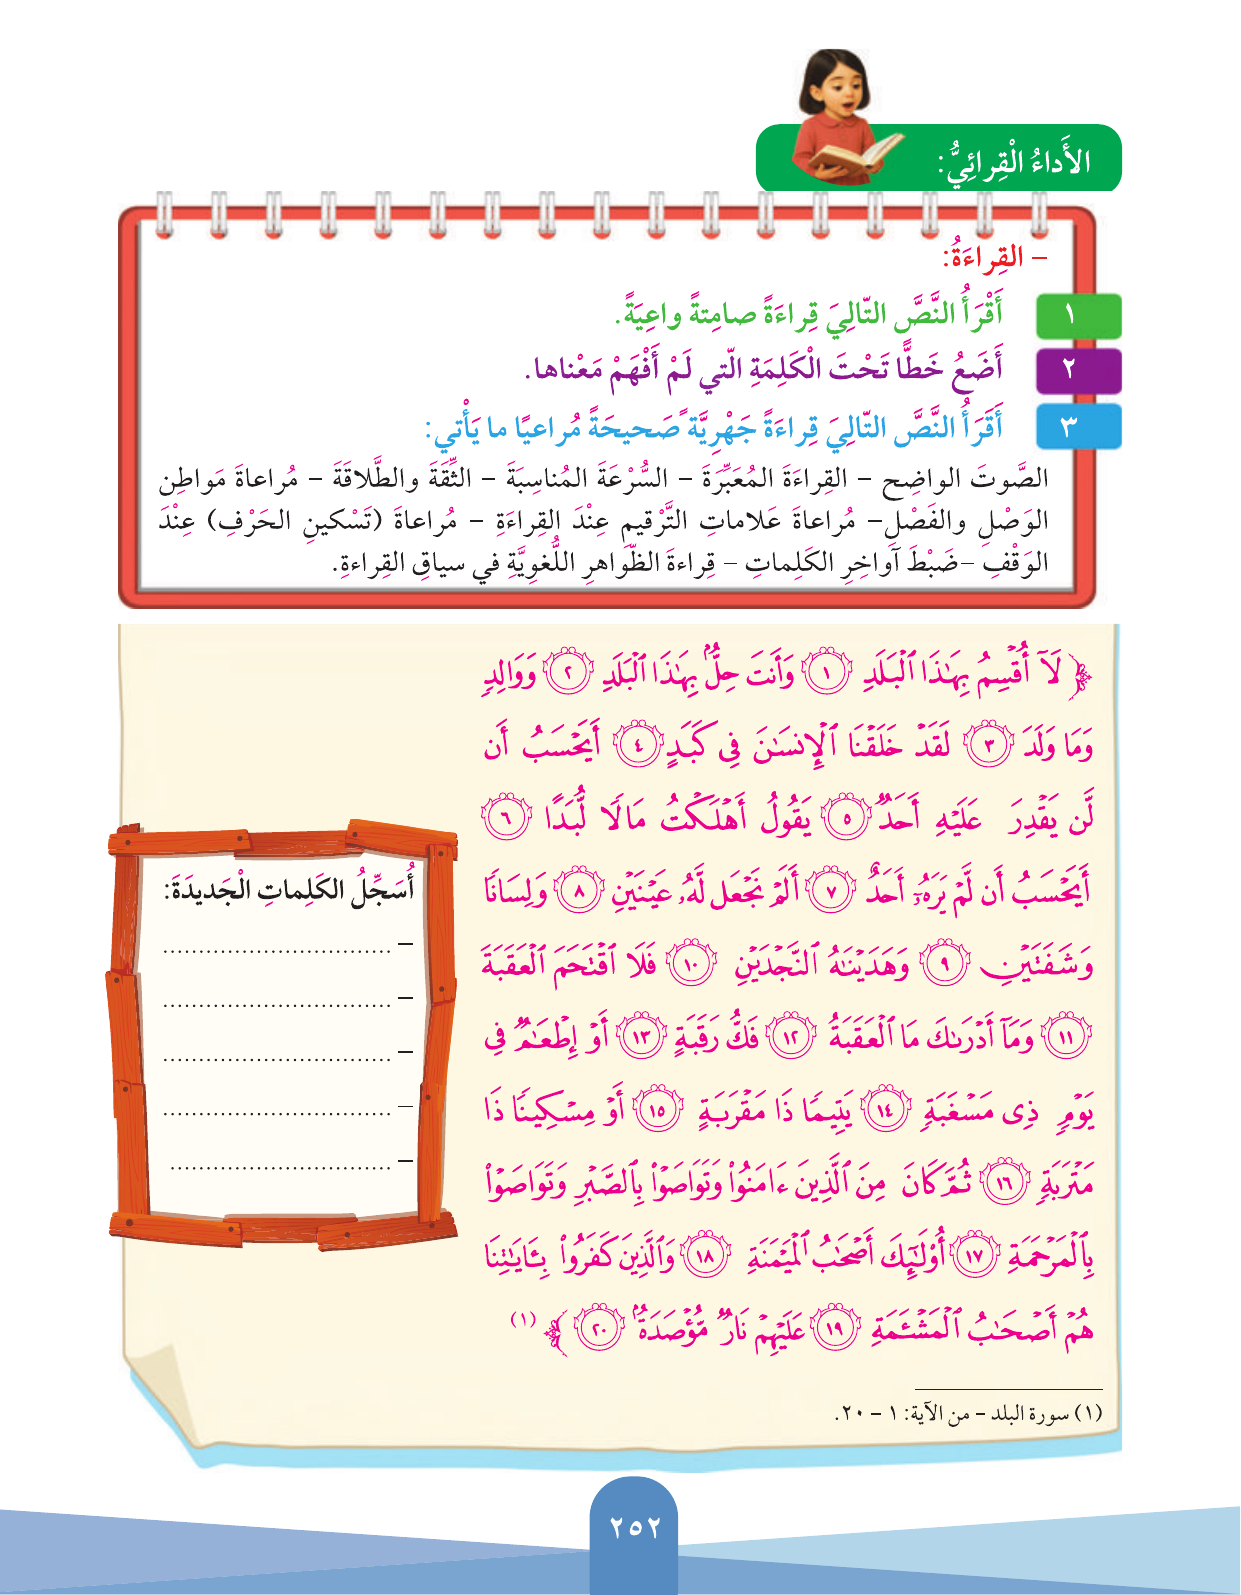 الأَداءُ الْقِرائِيُّ:
– القِراءَةُ:
١ أَقْرَأُ النَّصَّ التّالِيَ قِراءَةً صامِتةً واعِيَةً.
٢ أَضَعُ خَطًّا تَحْتَ الْكَلِمَةِ الّتي لَمْ أَفْهَمْ مَعْناها.
٣ أَقَرَأُ النَّصَّ التّالِيَ قِراءَةً جَهْرِيَّةً صَحيحَةً مُراعيًا ما يَأْتي:
الصَّوتَ الواضِح – القِراءَةَ المُعَبِّرَةَ – السُّرْعَةَ المُناسِبَةَ – الثِّقَةَ والطَّلاقَةَ – مُراعاةَ مَواطِنِ
الوَصْلِ والفَصْلِ– مُراعاةَ عَلاماتِ التَّرْقيمِ عِنْدَ القِراءَةِ – مُراعاةَ (تَسْكينِ الحَرْفِ) عِنْدَ
الوَقْفِ –ضَبْطَ آواخِرِ الكَلِماتِ – قِراءةَ الظَّواهرِ اللُّغوِيَّةِ في سياقِ القِراءةِ.
﴿ لَآ أُقۡسِمُ بِهَٰذَا ٱلۡبَلَدِ ١ وَأَنتَ حِلُّۢ بِهَٰذَا ٱلۡبَلَدِ ٢ وَوَالِدٖ
وَمَا وَلَدَ ٣ لَقَدۡ خَلَقۡنَا ٱلۡإِنسَٰنَ فِي كَبَدٍ ٤ أَيَحۡسَبُ أَن
لَّن يَقۡدِرَ عَلَيۡهِ أَحَدٞ ٥ يَقُولُ أَهۡلَكۡتُ مَالٗا لُّبَدًا ٦
أَيَحۡسَبُ أَن لَّمۡ يَرَهُۥٓ أَحَدٌ ٧ أَلَمۡ نَجۡعَل لَّهُۥ عَيۡنَيۡنِ ٨ وَلِسَانٗا
وَشَفَتَيۡنِ ٩ وَهَدَيۡنَٰهُ ٱلنَّجۡدَيۡنِ ١٠ فَلَا ٱقۡتَحَمَ ٱلۡعَقَبَةَ
١١ وَمَآ أَدۡرَىٰكَ مَا ٱلۡعَقَبَةُ ١٢ فَكُّ رَقَبَةٍ ١٣ أَوۡ إِطۡعَٰمٞ فِي
يَوۡمٖ ذِي مَسۡغَبَةٖ ١٤ يَتِيمٗا ذَا مَقۡرَبَةٍ ١٥ أَوۡ مِسۡكِينٗا ذَا
مَتۡرَبَةٖ ١٦ ثُمَّ كَانَ مِنَ ٱلَّذِينَ ءَامَنُواْ وَتَوَاصَوۡاْ بِٱلصَّبۡرِ وَتَوَاصَوۡاْ
بِٱلۡمَرۡحَمَةِ ١٧ أُوْلَٰٓئِكَ أَصۡحَٰبُ ٱلۡمَيۡمَنَةِ ١٨ وَٱلَّذِينَ كَفَرُواْ بِـَٔايَٰتِنَا
هُمۡ أَصۡحَٰبُ ٱلۡمَشۡـَٔمَةِ ١٩ عَلَيۡهِمۡ نَارٞ مُّؤۡصَدَةُۢ ٢٠ ﴾ (١)
أُسَجِّلُ الكَلِماتِ الْجَديدَةَ:
– ................................
– ................................
– ................................
– ................................
– ...............................
(١) سورة البلد – من الآية: ١ – ٢٠.
٢٥٢